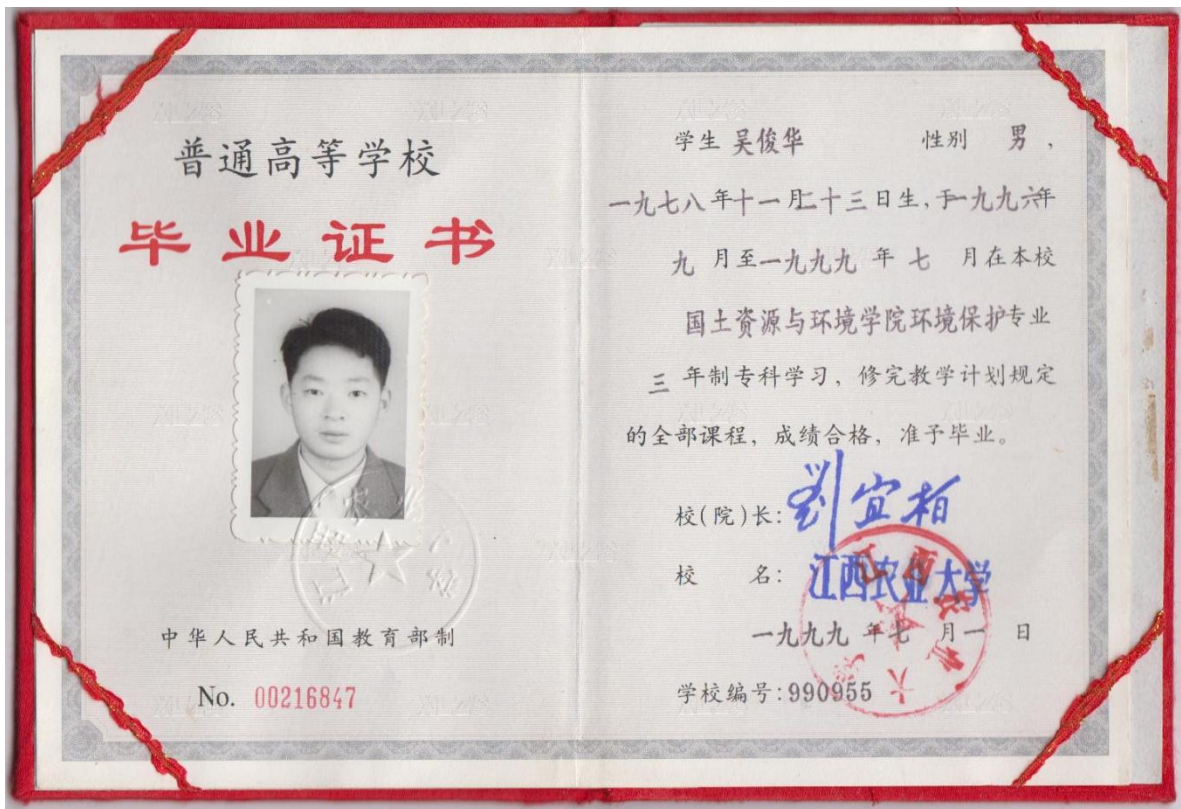 普通高等学校
毕业证书
中华人民共和国教育部制
No. 00216847
学生 吴俊华 性别 男,
一九七八年十一月二十三日生,于一九九六年
九 月至一九九九 年 七 月在本校
国土资源与环境学院环境保护专业
三 年制专科学习, 修完教学计划规定
的全部课程, 成绩合格, 准予毕业。
校(院)长: 劉宜柏
校 名: 江西农业大学
一九九九 年七 月一 日
学校编号:990955
江西农业大学